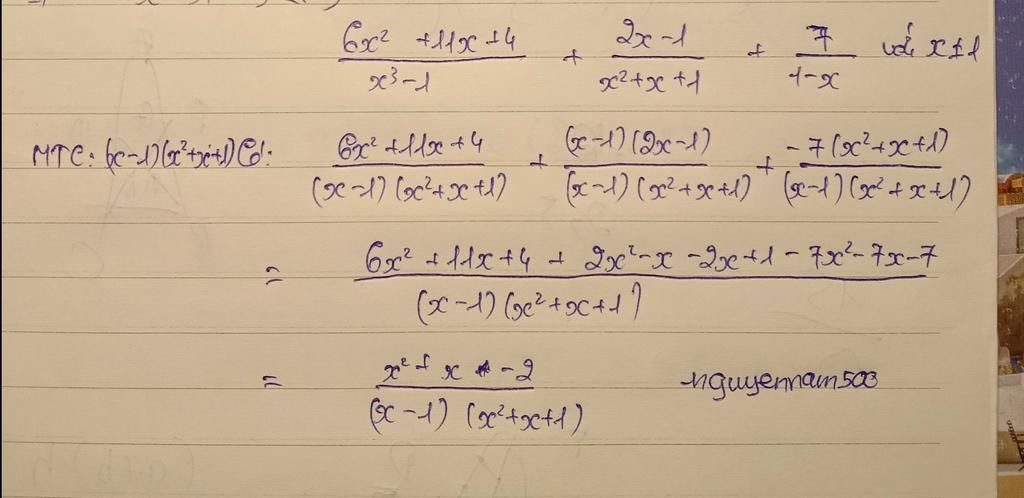 6x² + 11x + 4 / x³ - 1 + 2x - 1 / x² + x + 1 + 7 / 1 - x với x ≠ 1
MTC: (x - 1)(x² + x + 1) Có: 6x² + 11x + 4 / (x - 1)(x² + x + 1) + (x - 1)(2x - 1) / (x - 1)(x² + x + 1) + -7(x² + x + 1) / (x - 1)(x² + x + 1)
= 6x² + 11x + 4 + 2x² - x - 2x + 1 - 7x² - 7x - 7 / (x - 1)(x² + x + 1)
= x² + x - 2 / (x - 1)(x² + x + 1) nguyennam503